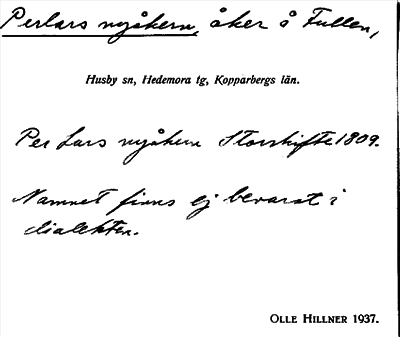 Perlars nyåkern, åker å Fullen,
Husby sn, Hedemora tg, Kopparbergs län.
Per Lars nyåkern Storskifte 1809.
Namnet finns ej bevarat i
dialekten.
OLLE HILLNER 1937.